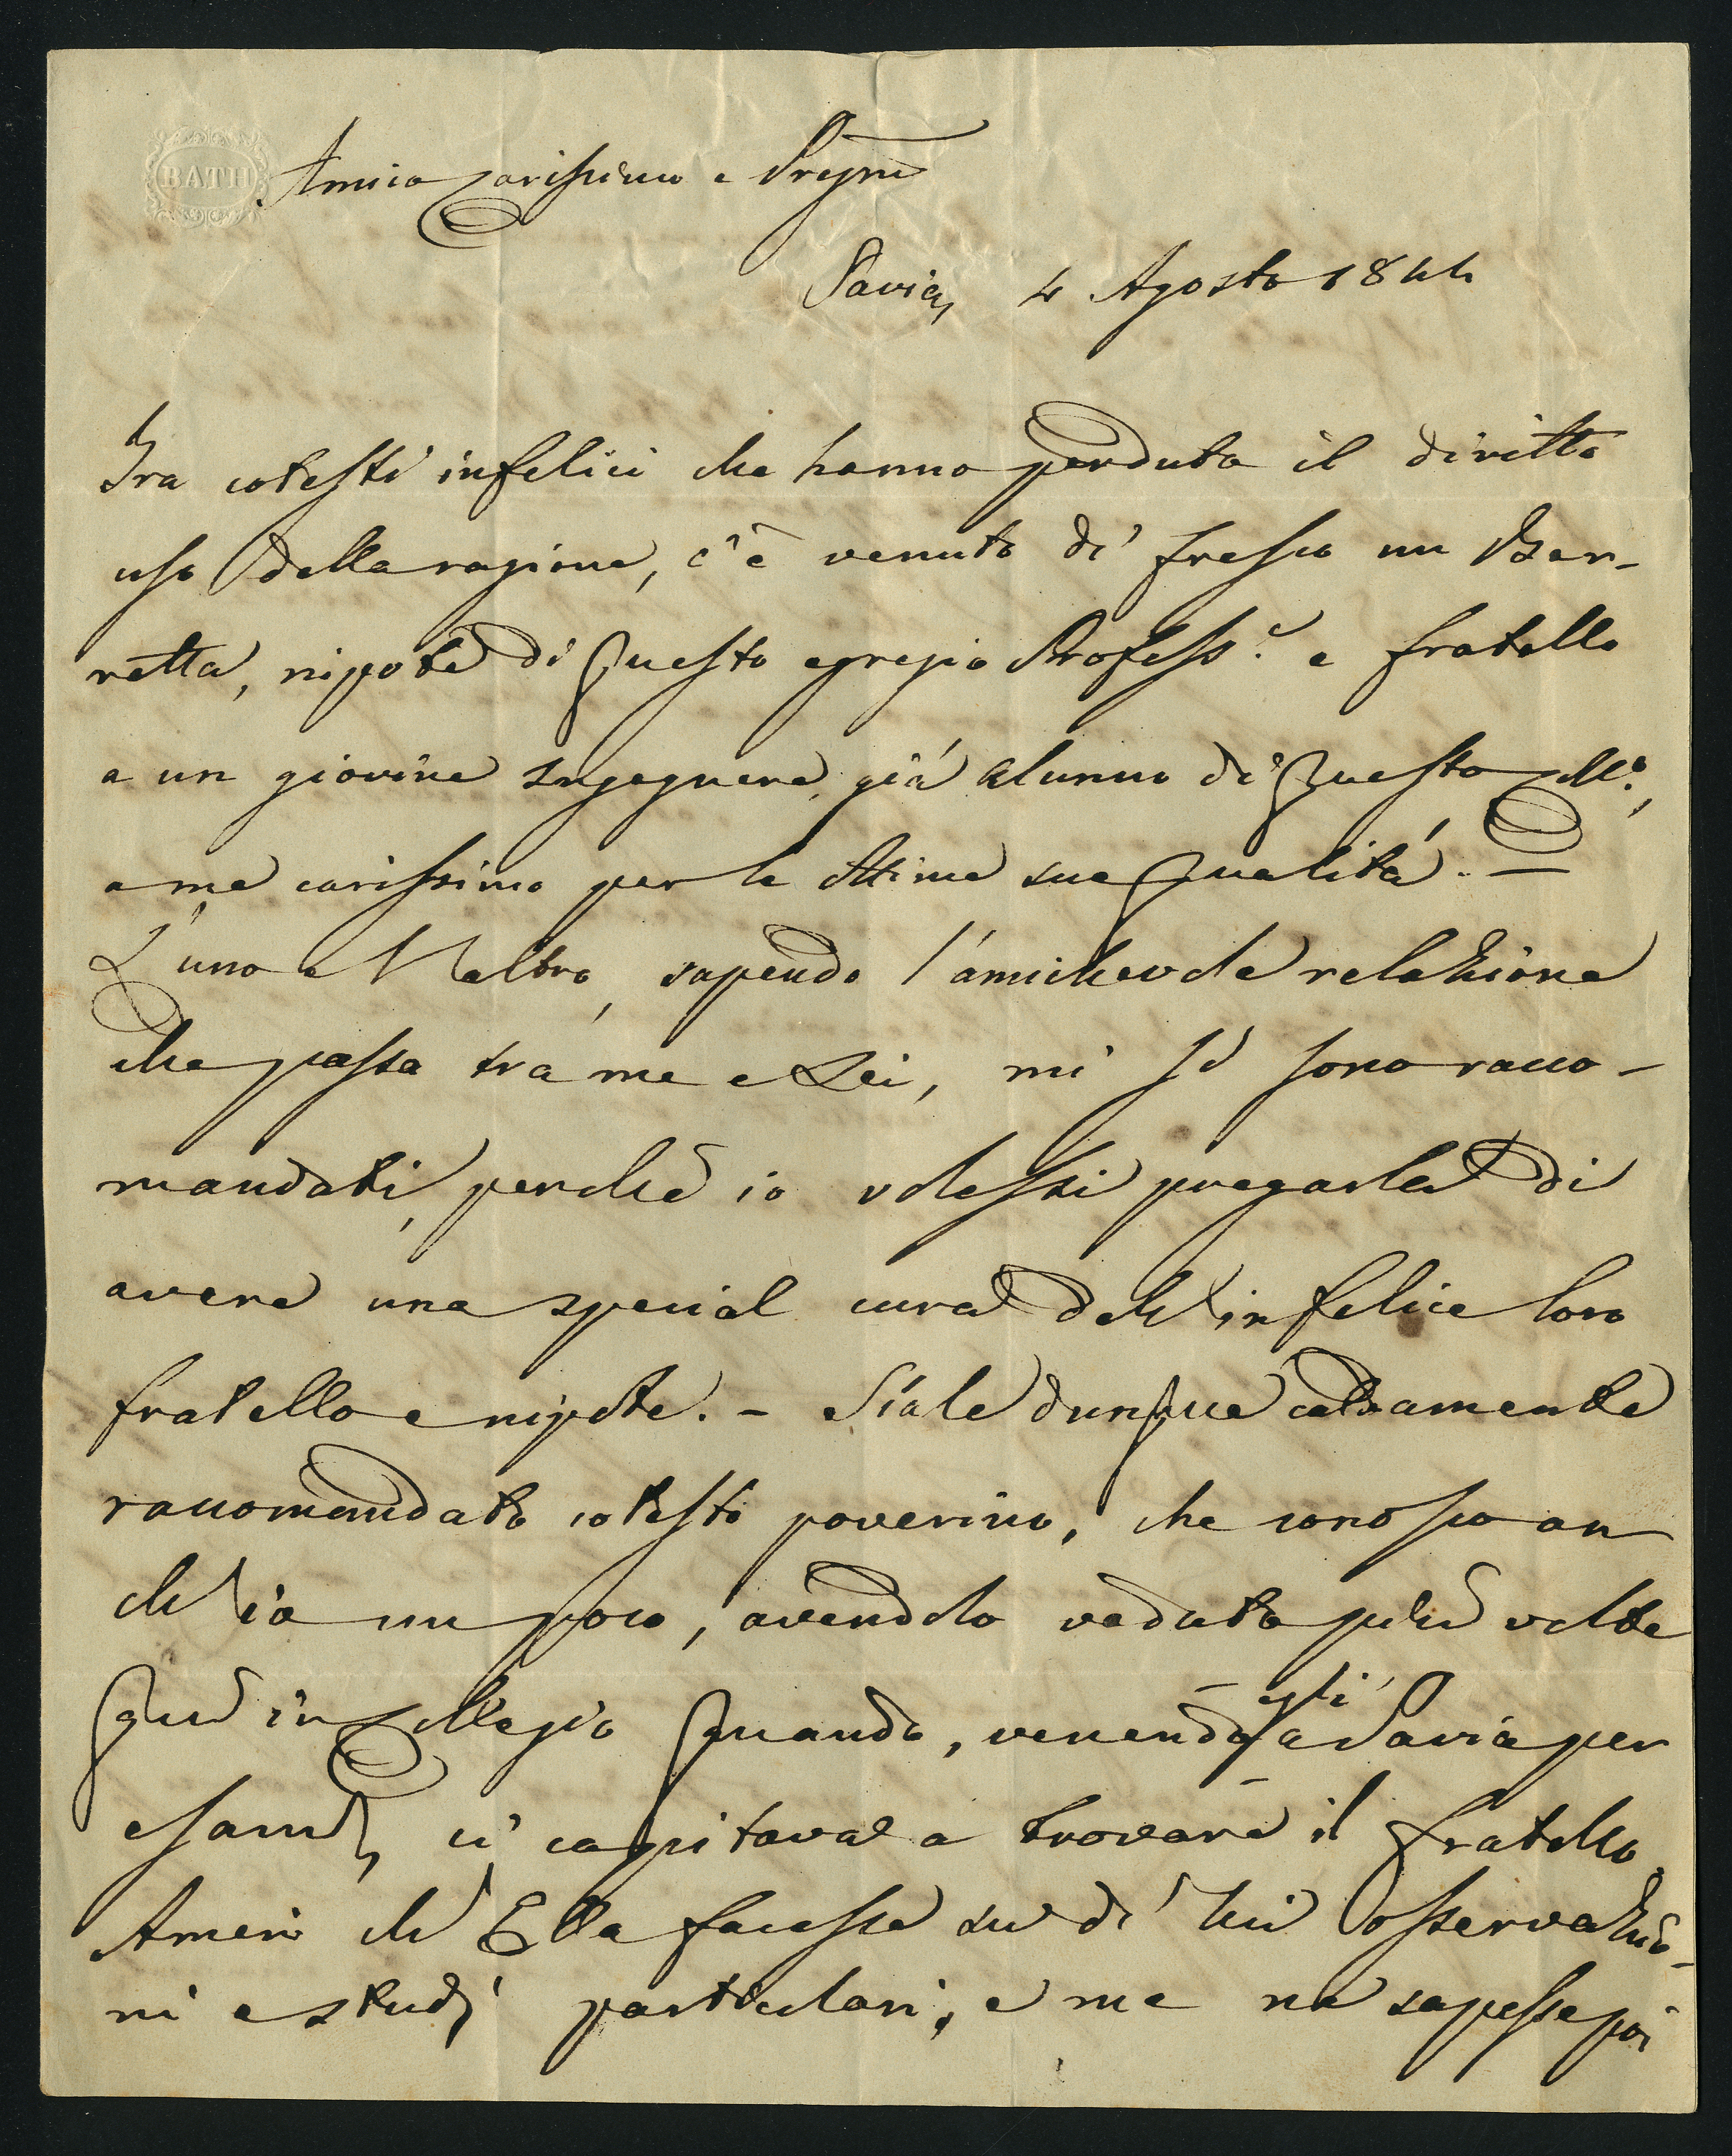 BATH
Amico Carissimo e Pregmo
Pavia, 4 Agosto 1844
Tra cotesti infelici che hanno perduto il diritto
uso della ragione, c'è venuto di fresco un Bar-
retta, nipote di questo egregio Profess.e e fratello
a un giovine Ingegnere, già alunno di questo Coll.o,
a me carissimo per le ottime sue qualità. —
L'uno e l'altro, sapendo l'amichevole relazione
che passa tra me e Lei, mi si sono racco-
mandati, perchè io volessi pregarla di
avere una special cura dell'infelice loro
fratello e nipote. - Siale dunque caldamente
raccomandato cotesto poverino, che conosco an
ch'io un poco, avendolo veduto più volte
qui in Collegio quando, venendo egli a Pavia per
esami, ci capitava a trovare il fratello.
Amerei ch'Ella facesse su di lui osservazio-
ni e studj particolari, e me ne sapesse poi